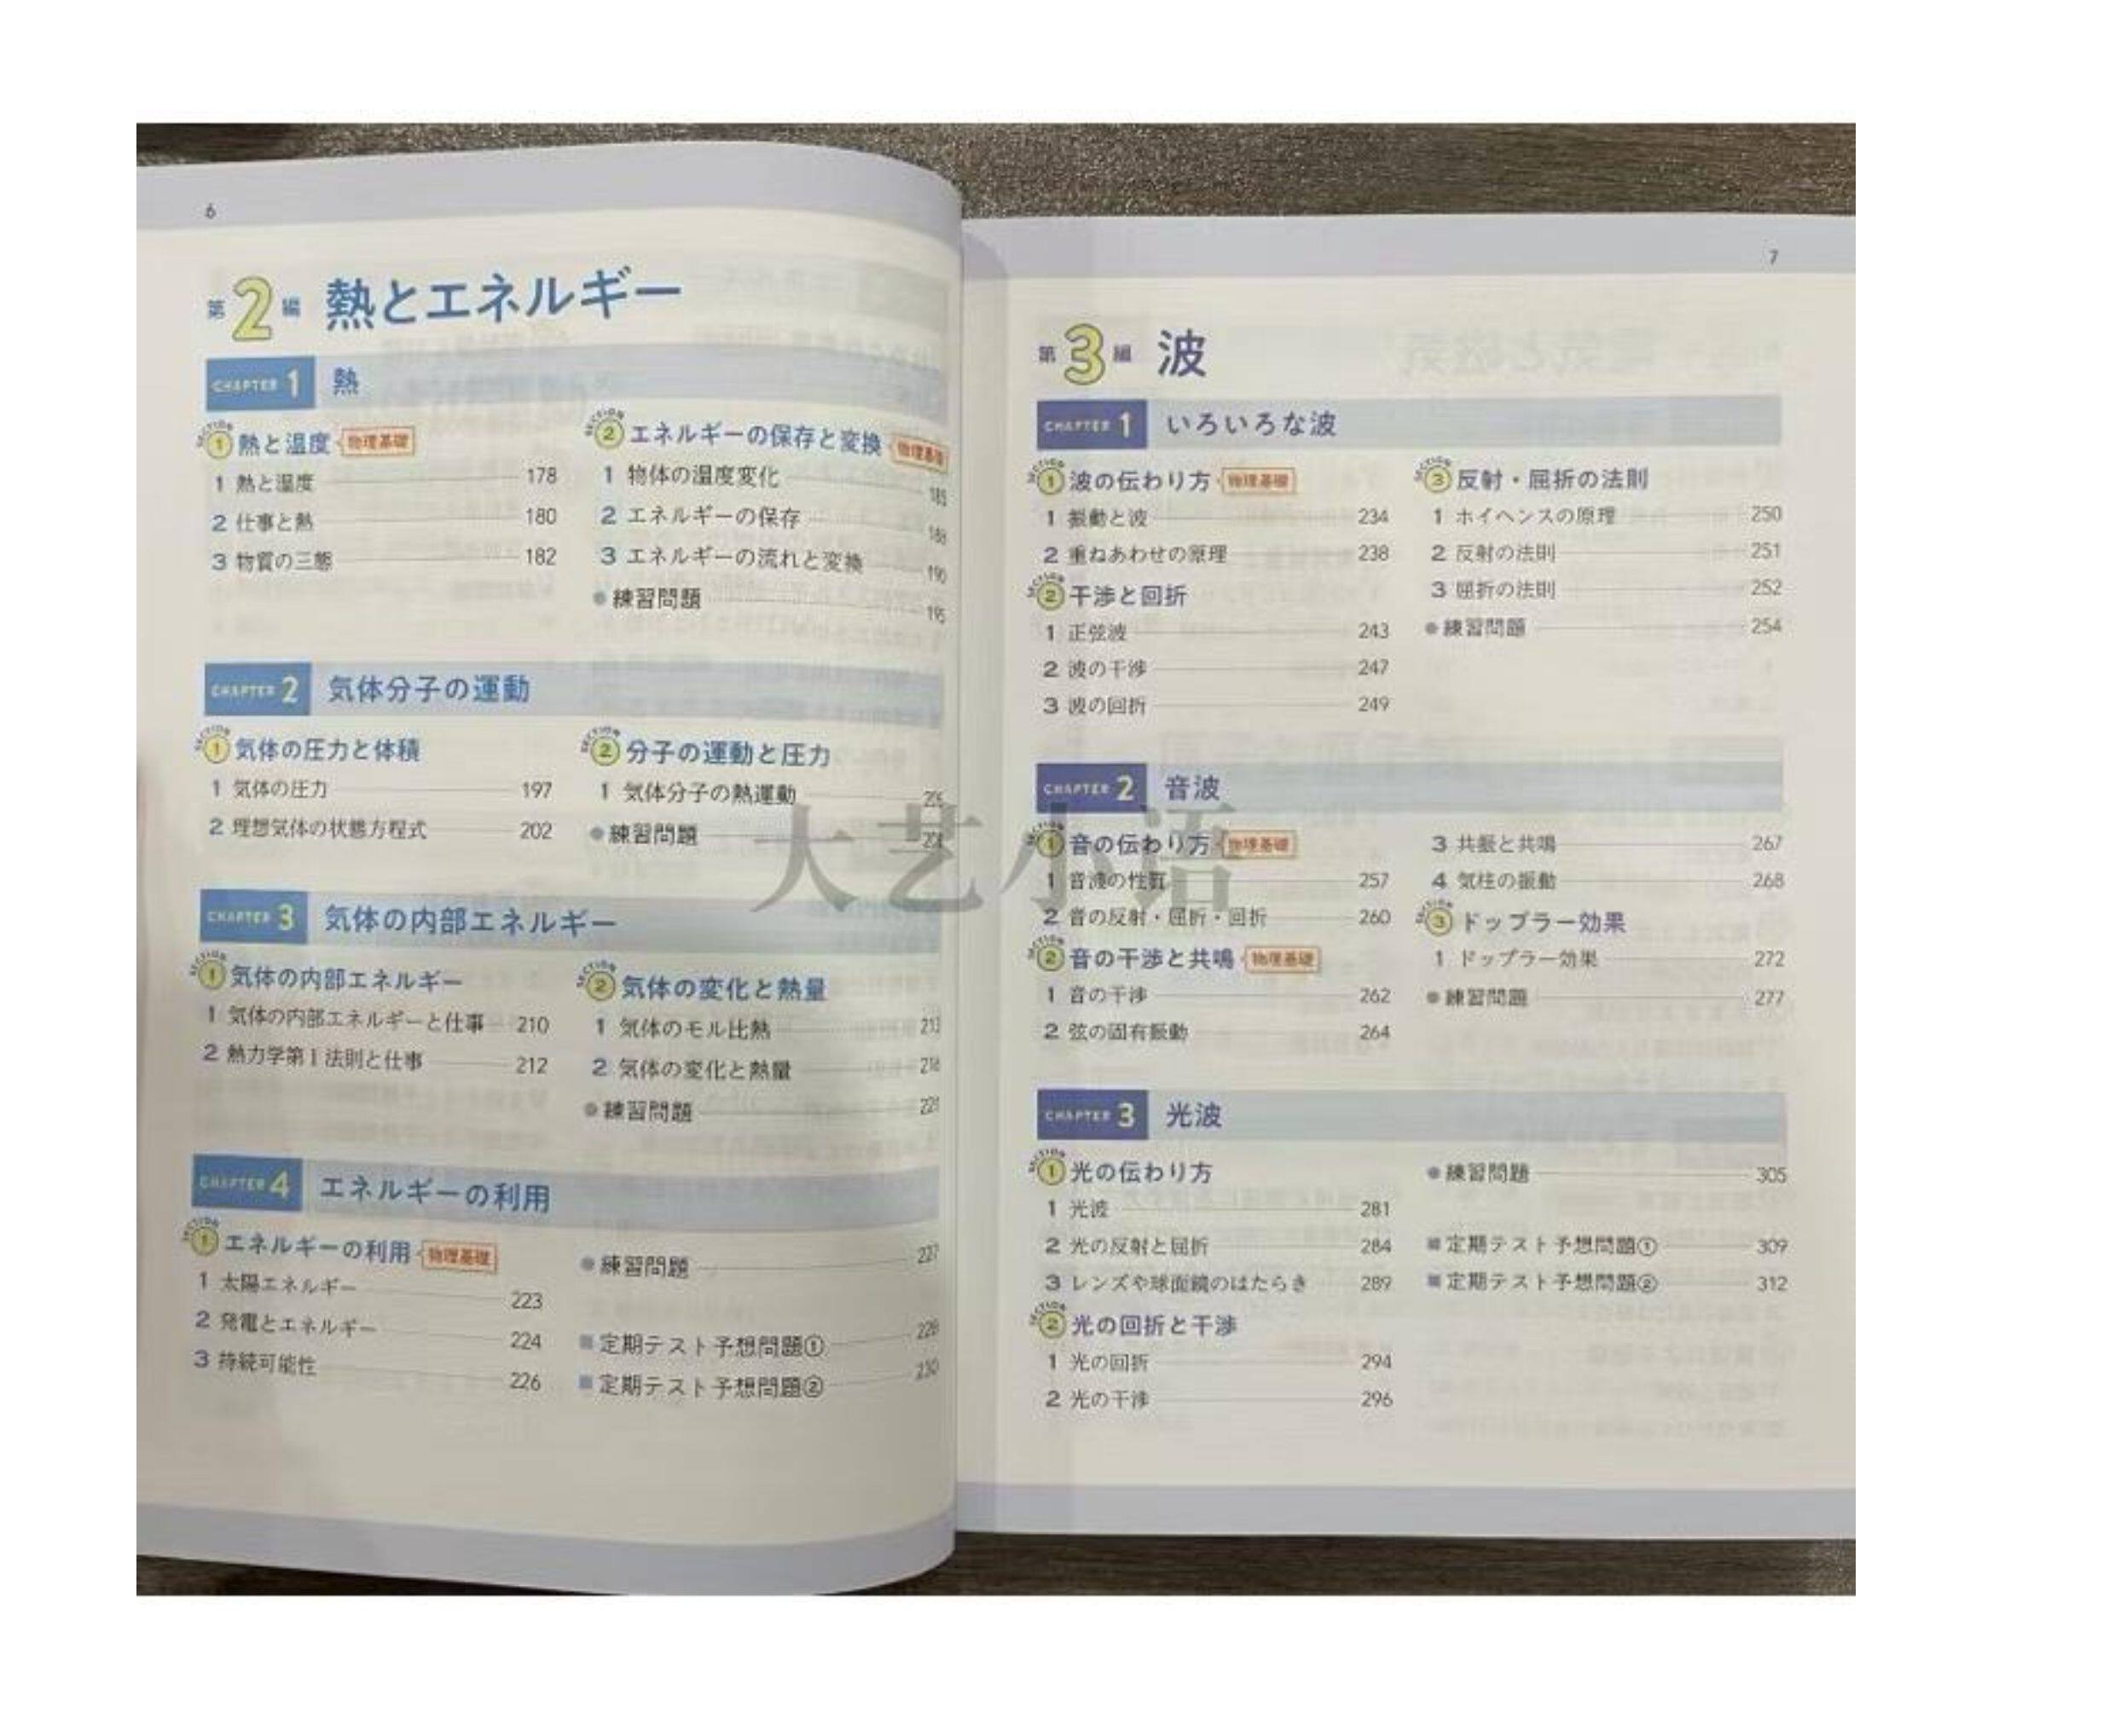 6
第2編 熱とエネルギー
CHAPTER 1 熱
SECTION 1 熱と温度 物理基礎
1 熱と温度 178
2 仕事と熱 180
3 物質の三態 182
SECTION 2 エネルギーの保存と変換 物理基礎
1 物体の温度変化 185
2 エネルギーの保存 188
3 エネルギーの流れと変換 190
●練習問題 195
CHAPTER 2 気体分子の運動
SECTION 1 気体の圧力と体積
1 気体の圧力 197
2 理想気体の状態方程式 202
SECTION 2 分子の運動と圧力
1 気体分子の熱運動
●練習問題
CHAPTER 3 気体の内部エネルギー
SECTION 1 気体の内部エネルギー
1 気体の内部エネルギーと仕事 210
2 熱力学第1法則と仕事 212
SECTION 2 気体の変化と熱量
1 気体のモル比熱 213
2 気体の変化と熱量
●練習問題
CHAPTER 4 エネルギーの利用
SECTION 1 エネルギーの利用 物理基礎
1 太陽エネルギー 223
2 発電とエネルギー 224
3 持続可能性 226
●練習問題 227
■定期テスト予想問題① 228
■定期テスト予想問題② 230
7
第3編 波
CHAPTER 1 いろいろな波
SECTION 1 波の伝わり方 物理基礎
1 振動と波 234
2 重ねあわせの原理 238
SECTION 2 干渉と回折
1 正弦波 243
2 波の干渉 247
3 波の回折 249
SECTION 3 反射・屈折の法則
1 ホイヘンスの原理 250
2 反射の法則 251
3 屈折の法則 252
●練習問題 254
CHAPTER 2 音波
SECTION 1 音の伝わり方 物理基礎
1 音波の性質 257
2 音の反射・屈折・回折 260
SECTION 2 音の干渉と共鳴 物理基礎
1 音の干渉 262
2 弦の固有振動 264
3 共振と共鳴 267
4 気柱の振動 268
SECTION 3 ドップラー効果
1 ドップラー効果 272
●練習問題 277
CHAPTER 3 光波
SECTION 1 光の伝わり方
1 光波 281
2 光の反射と屈折 284
3 レンズや球面鏡のはたらき 289
SECTION 2 光の回折と干渉
1 光の回折 294
2 光の干渉 296
●練習問題 305
■定期テスト予想問題① 309
■定期テスト予想問題② 312
大艺小语